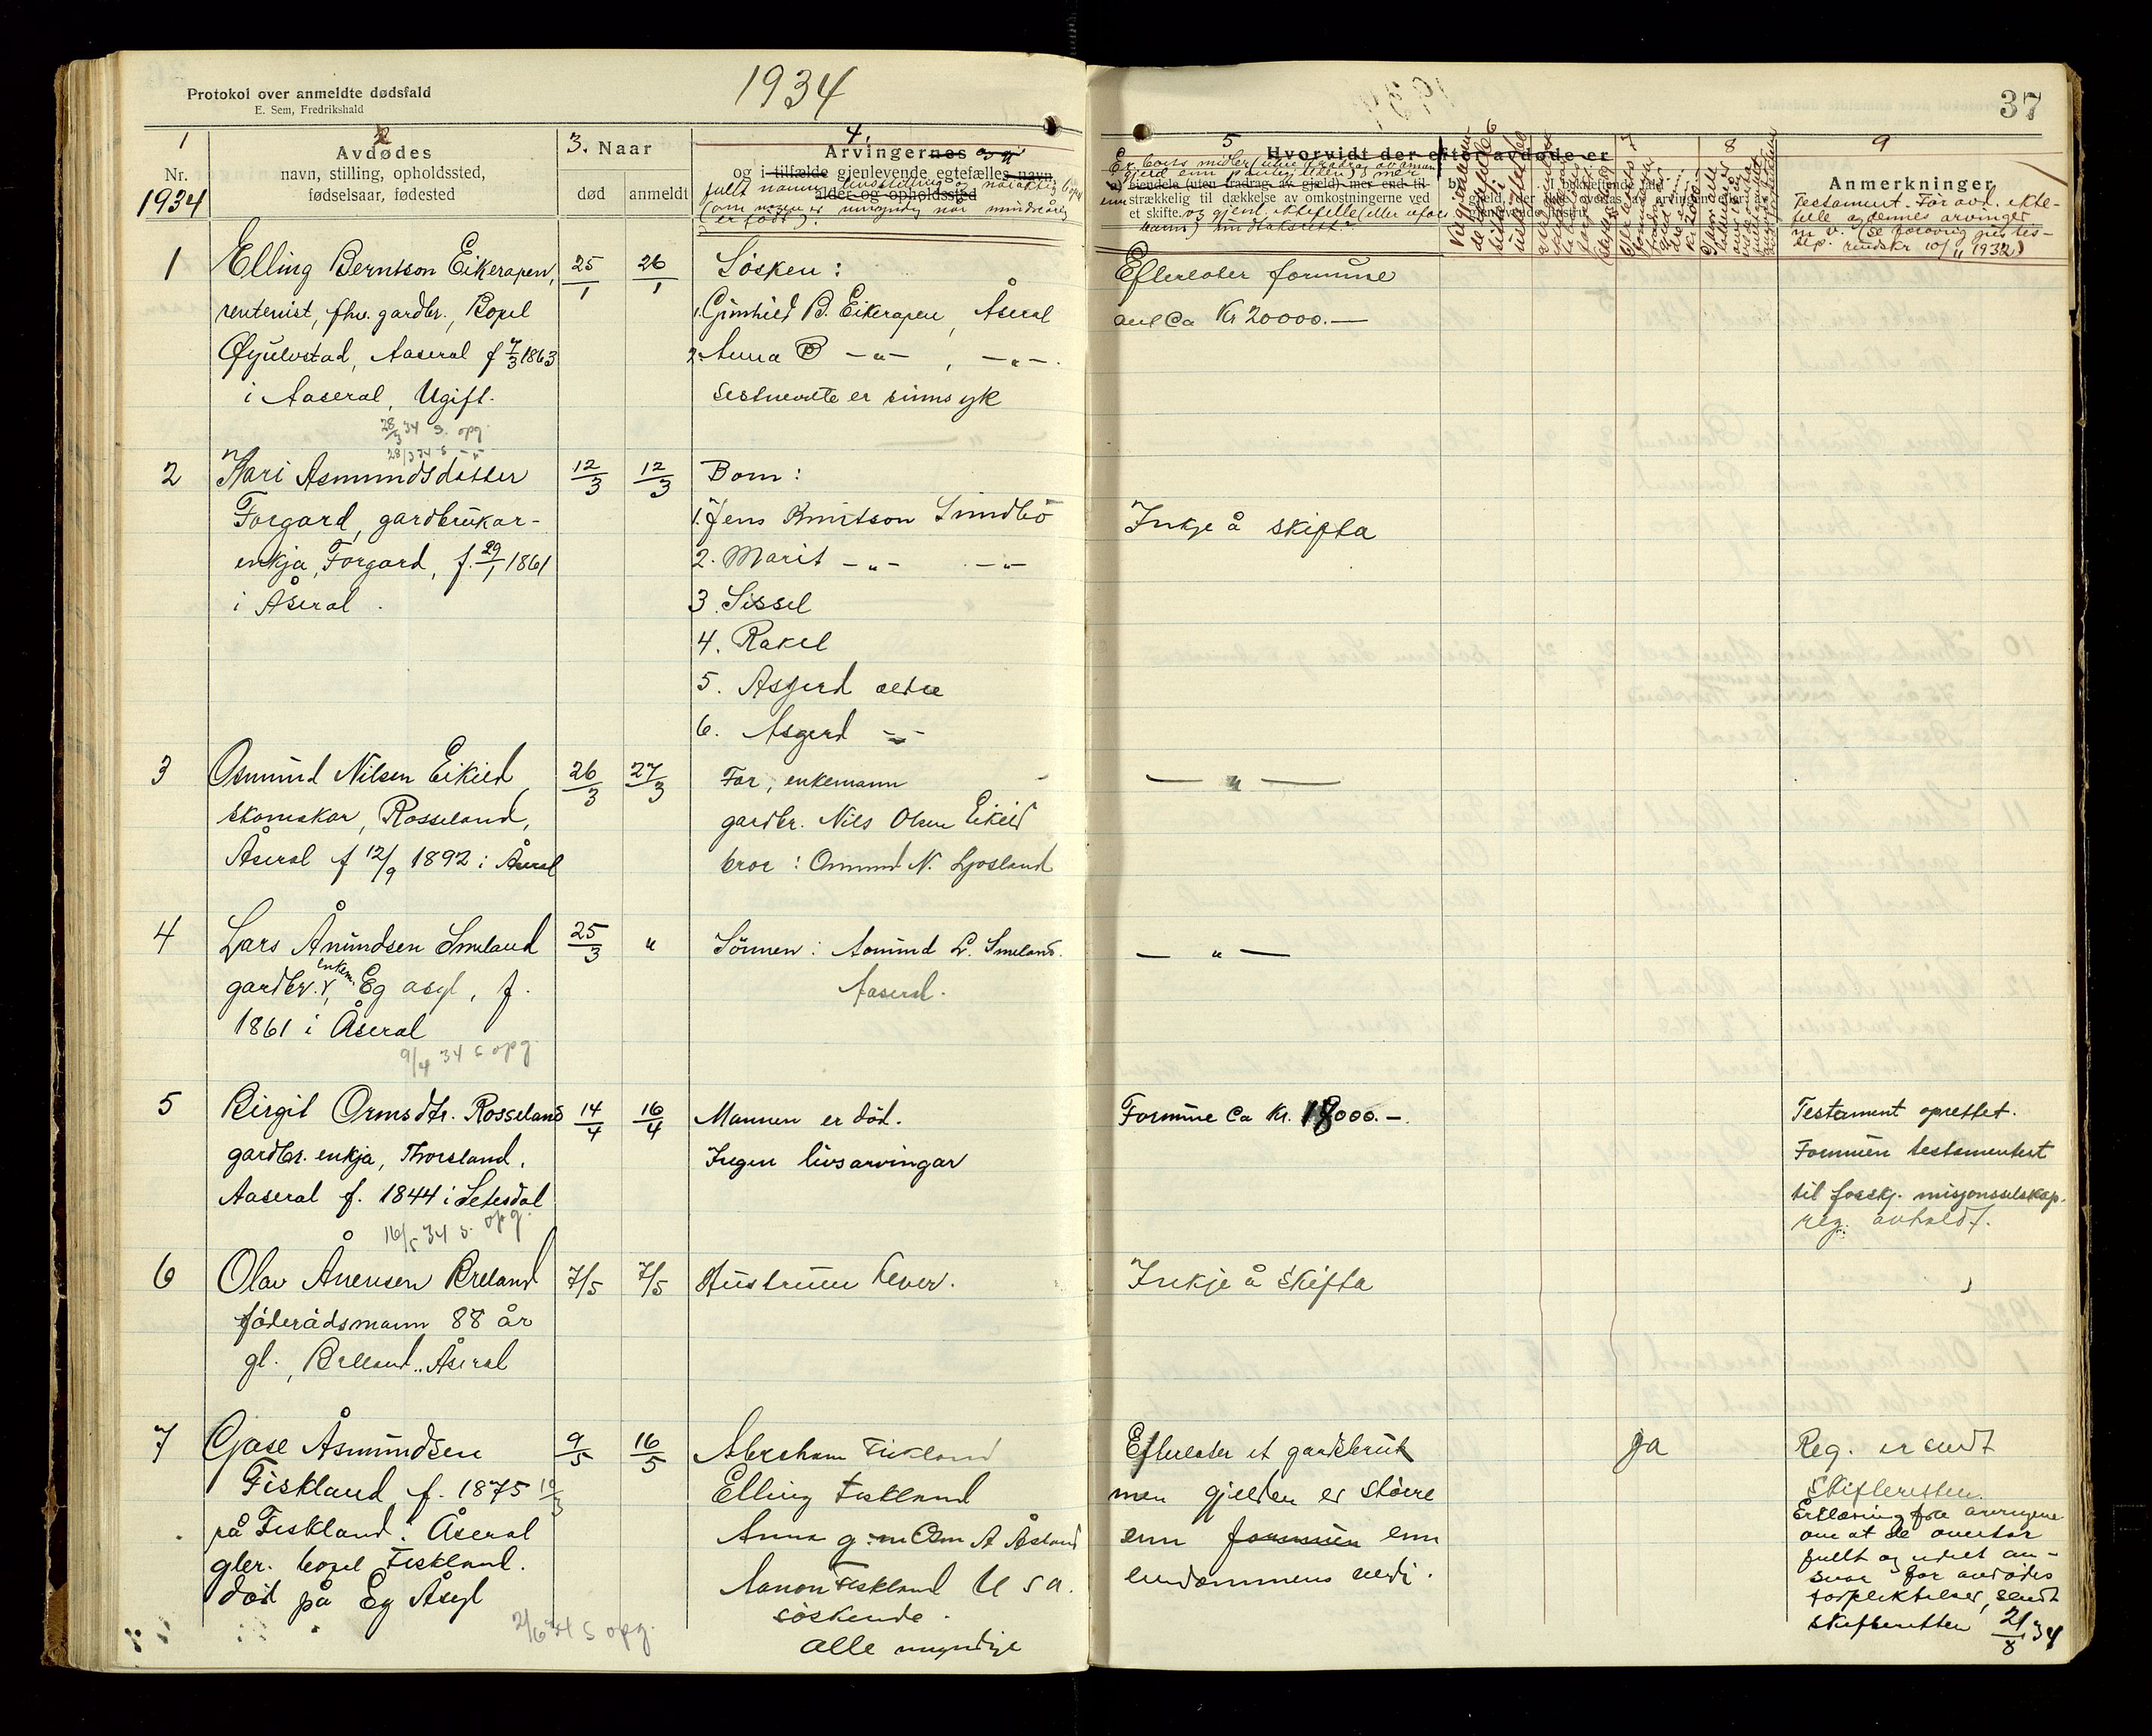 Protokol over anmeldte dødsfald
E. Sem, Fredrikshald
1934
37
1
2
3. Naar
4.
5
8
9
Nr.
1934
Avdødes
navn, stilling, opholdssted,
fødselsaar, fødested
død
anmeldt
Arvingernes
og i tilfælde gjenlevende egtefælles navn,
alder og opholdssted
fullt navn, livsstilling og
er født).
Hvorvidt der efter avdøde er
eiendele (uten fradrag av gjæld) mer end til
strækkelig til dækkelse av omkostningerne ved
et skifte.
Anmerkninger
Testament. For avd. ekte-
felle og dennes arvinger
1
Elling Berntson Eikerapen,
rentenist, fhv. gardbr., Bopel
Øyulvstad, Aaseral f 7/3 1863
i Aaseral, Ugift.
28/3 34 s. opg.
25/1
26/1
Søsken:
1. Gunhild B. Eikerapen, Åseral
2. Anna B -"- , -"-.
Sistnevnte er sinnsyk
Efterlater formue
anl Ca Kr 20000.—
2
28/3 34 s -"-
Kari Asmundsdotter
Forgard, gardbrukar-
enkja, Forgard, f. 29/1 1861
i Åseral.
12/3
12/3
Born:
1. Jens Knutson Sundbö
2. Marit -"- -"-
3. Sissel
4. Rakel
5. Asgerd eldre
6. Asgerd
Inkje å skifta
3
Osmund Nilsen Eikild
skomakar, Rosseland,
Åseral f 12/9 1892 i Åseral
26/3
27/3
Far, enkemann
gardbr. Nils Olsen Eikild
bror: Osmund N. Ljosland
— " —
4
Lars Ånundsen Smeland
gardbr. enkem. Eg asyl, f.
1861 i Åseral
9/4 34 s opg.
25/3
"
Sönnen: Aanund L. Smeland.
Aaseral.
— " —
5
Birgit Ormsdtr. Rosseland
gardbr. enkja, Thorsland,
Aaseral f. 1844 i Setesdal
16/5 34 s. opg.
14/4
16/4
Mannen er död.
Ingen livsarvingar
Formue Ca Kr. 18000.—.
Testament oprettet.
Formuen testamentert
til forskj. misjonsselskap.
reg. avholdt.
6
Olav Ånensen Breland
föderådsmann 88 år
gl., Breland, Åseral
7/5
7/5
Hustruen lever.
Inkje å skifta
7
Gjase Åsmundsen
Fiskland f. 1875 10/3
på Fiskland i Åseral
gbr. bopel Fiskland.
död på Eg Asyl
2/6 34 s opg.
9/5
16/5
Abraham Fiskland
Elling Fiskland
Anna g. m Osm A Åsland
Aanon Fiskland U S A.
söskende.
alle myndige
Efterlater et gardsbruk
men gjelden er större
enn formuen enn
eiendommens verdi.
ja
Reg. er sendt
Skifteretten.
Erklæring fra arvingene
om at de overtar
fullt og udelt an-
svar for avdödes
forpliktelser, sendt
skifteretten 21/8 34